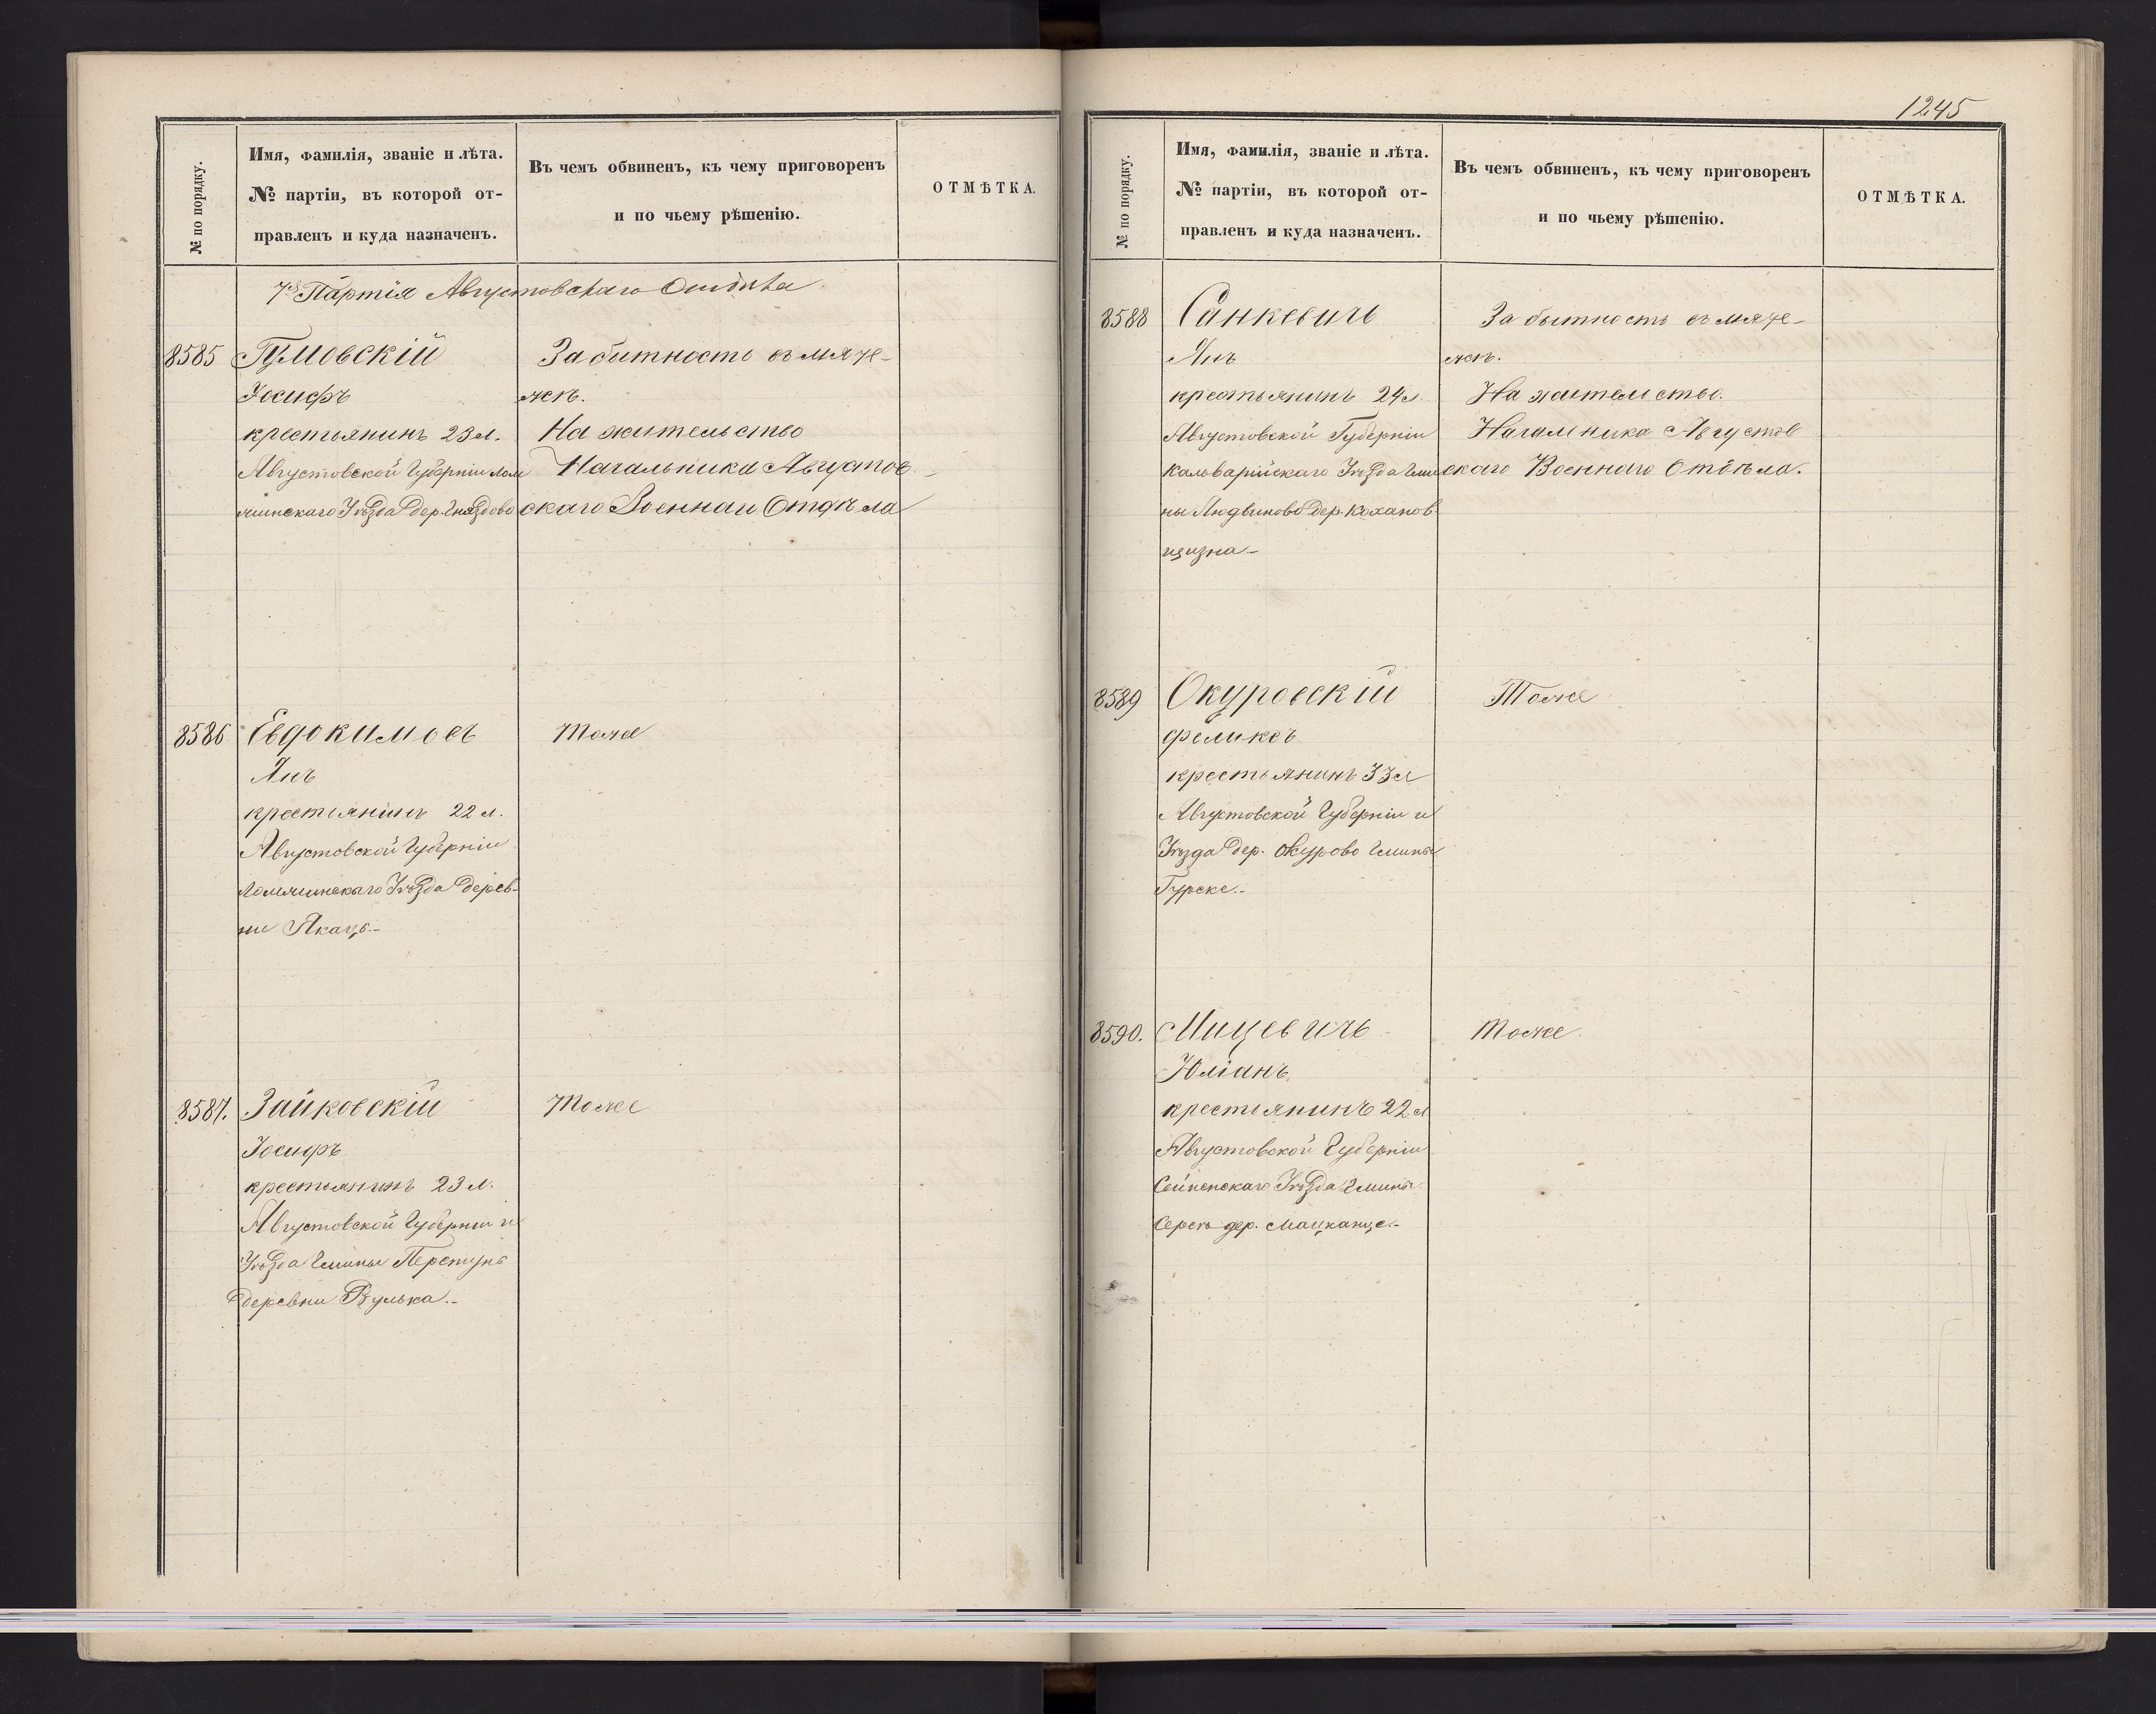 № по порядку.
Имя, фамилія, званіе и лѣта.
№ партіи, въ которой от-
правленъ и куда назначенъ.
Въ чемъ обвиненъ, къ чему приговоренъ
и по чьему рѣшенію.
ОТМѢТКА.
7я Партія Августовскаго Отдѣла
8585
Гумовскій
Іосифъ
крестьянинъ 23 л.
Августовской Губерніи Лом
жинскаго Уѣзда дер. Гнѣздово
За битность въ мяте-
жѣ.
На жительство
Начальника Августов-
скаго Военнаго Отдѣла
8586
Евдокимовъ
Янъ
крестьянинъ 22 л.
Августовской Губерніи
Ломжинскаго Уѣзда дерев-
ни Якаць.-
Тоже
8587.
Зайковскій
Іосифъ
крестьянинъ 23 л.
Августовской Губерніи и
Уѣзда Гмины
деревни Вулька.-
Тоже
1245
№ по порядку.
Имя, фамилія, званіе и лѣта.
№ партіи, въ которой от-
правленъ и куда назначенъ.
Въ чемъ обвиненъ, къ чему приговоренъ
и по чьему рѣшенію.
ОТМѢТКА.
8588
Санкевичъ
Янъ
крестьянинъ 24 л
Августовской Губерніи
Кальварійскаго Уѣзда Гми
ны Людвиново дер. Кохановт
щизна-
За бытность въ мяте-
жѣ.
На жительство.
Начальника Августов
скаго Военнаго Отдѣла.
8589
Окуровскій
Феликсъ
крестьянинъ 33 л
Августовской Губерніи и
Уѣзда дер. Окурово Гмины
Гурске.-
Тоже
8590.
Мицевичъ
Юліанъ
крестьянинъ 22 л
Августовской Губерніи
Сейненскаго Уѣзда Гмины
дер. Мацканце.-
Тоже